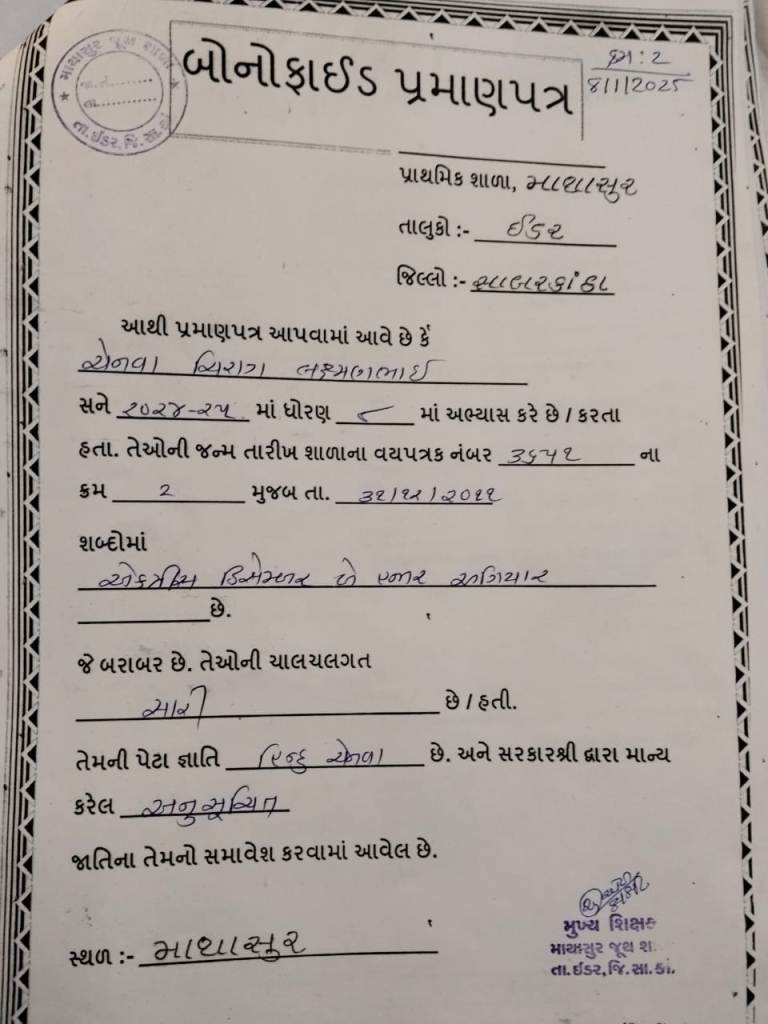 માથાસુર જૂથ શાળા
જા.નં.............
તા...............
તા.ઈડર, જિ.સા.કાં.
બોનોફાઈડ પ્રમાણપત્ર
ક્રમ : 2
8/1/2025
પ્રાથમિક શાળા, માથાસુર
તાલુકો :- ઈડર
જિલ્લો :- સાબરકાંઠા
આથી પ્રમાણપત્ર આપવામાં આવે છે કે
ચેનવા ચિરાગ લક્ષ્મણભાઈ
સને ૨૦૨૪-૨૫ માં ધોરણ ૮ માં અભ્યાસ કરે છે / કરતા
હતા. તેઓની જન્મ તારીખ શાળાના વયપત્રક નંબર ૩૬૫૧ ના
ક્રમ 2 મુજબ તા. ૩૧/૧૨/૨૦૧૧
શબ્દોમાં
એકત્રીસ ડિસેમ્બર બે હજાર અગિયાર
છે.
જે બરાબર છે. તેઓની ચાલચલગત
સારી છે / હતી.
તેમની પેટા જ્ઞાતિ હિન્દુ ચેનવા છે. અને સરકારશ્રી દ્વારા માન્ય
કરેલ અનુસૂચિત
જાતિના તેમનો સમાવેશ કરવામાં આવેલ છે.
મુખ્ય શિક્ષક
માથાસુર જૂથ શા.
તા.ઈડર, જિ.સા.કાં.
સ્થળ :- માથાસુર